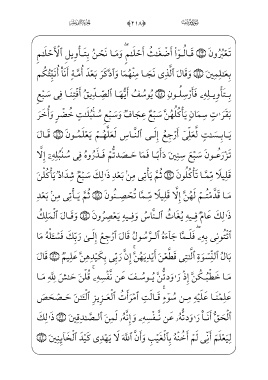 تَعْبُرُونَ ۝٤٣ قَالُوٓا۟ أَضْغَٰثُ أَحْلَٰمٍ ۖ وَمَا نَحْنُ بِتَأْوِيلِ ٱلْأَحْلَٰمِ
بِعَٰلِمِينَ ۝٤٤ وَقَالَ ٱلَّذِى نَجَا مِنْهُمَا وَٱدَّكَرَ بَعْدَ أُمَّةٍ أَنَا۠ أُنَبِّئُكُم
بِتَأْوِيلِهِۦ فَأَرْسِلُونِ ۝٤٥ يُوسُفُ أَيُّهَا ٱلصِّدِّيقُ أَفْتِنَا فِى سَبْعِ
بَقَرَٰتٍ سِمَانٍ يَأْكُلُهُنَّ سَبْعٌ عِجَافٌ وَسَبْعِ سُنۢبُلَٰتٍ خُضْرٍ وَأُخَرَ
يَابِسَٰتٍ لَّعَلِّىٓ أَرْجِعُ إِلَى ٱلنَّاسِ لَعَلَّهُمْ يَعْلَمُونَ ۝٤٦ قَالَ
تَزْرَعُونَ سَبْعَ سِنِينَ دَأَبًا فَمَا حَصَدتُّمْ فَذَرُوهُ فِى سُنۢبُلِهِۦٓ إِلَّا
قَلِيلًا مِّمَّا تَأْكُلُونَ ۝٤٧ ثُمَّ يَأْتِى مِنۢ بَعْدِ ذَٰلِكَ سَبْعٌ شِدَادٌ يَأْكُلْنَ
مَا قَدَّمْتُمْ لَهُنَّ إِلَّا قَلِيلًا مِّمَّا تُحْصِنُونَ ۝٤٨ ثُمَّ يَأْتِى مِنۢ بَعْدِ
ذَٰلِكَ عَامٌ فِيهِ يُغَاثُ ٱلنَّاسُ وَفِيهِ يَعْصِرُونَ ۝٤٩ وَقَالَ ٱلْمَلِكُ
ٱئْتُونِى بِهِۦ ۖ فَلَمَّا جَآءَهُ ٱلرَّسُولُ قَالَ ٱرْجِعْ إِلَىٰ رَبِّكَ فَسْـَٔلْهُ مَا
بَالُ ٱلنِّسْوَةِ ٱلَّٰتِى قَطَّعْنَ أَيْدِيَهُنَّ ۚ إِنَّ رَبِّى بِكَيْدِهِنَّ عَلِيمٌ ۝٥٠ قَالَ
مَا خَطْبُكُنَّ إِذْ رَٰوَدتُّنَّ يُوسُفَ عَن نَّفْسِهِۦ ۚ قُلْنَ حَٰشَ لِلَّهِ مَا
عَلِمْنَا عَلَيْهِ مِن سُوٓءٍ ۚ قَالَتِ ٱمْرَأَتُ ٱلْعَزِيزِ ٱلْـَٰٔنَ حَصْحَصَ
ٱلْحَقُّ أَنَا۠ رَٰوَدتُّهُۥ عَن نَّفْسِهِۦ وَإِنَّهُۥ لَمِنَ ٱلصَّٰدِقِينَ ۝٥١ ذَٰلِكَ
لِيَعْلَمَ أَنِّى لَمْ أَخُنْهُ بِٱلْغَيْبِ وَأَنَّ ٱللَّهَ لَا يَهْدِى كَيْدَ ٱلْخَآئِنِينَ ۝٥٢